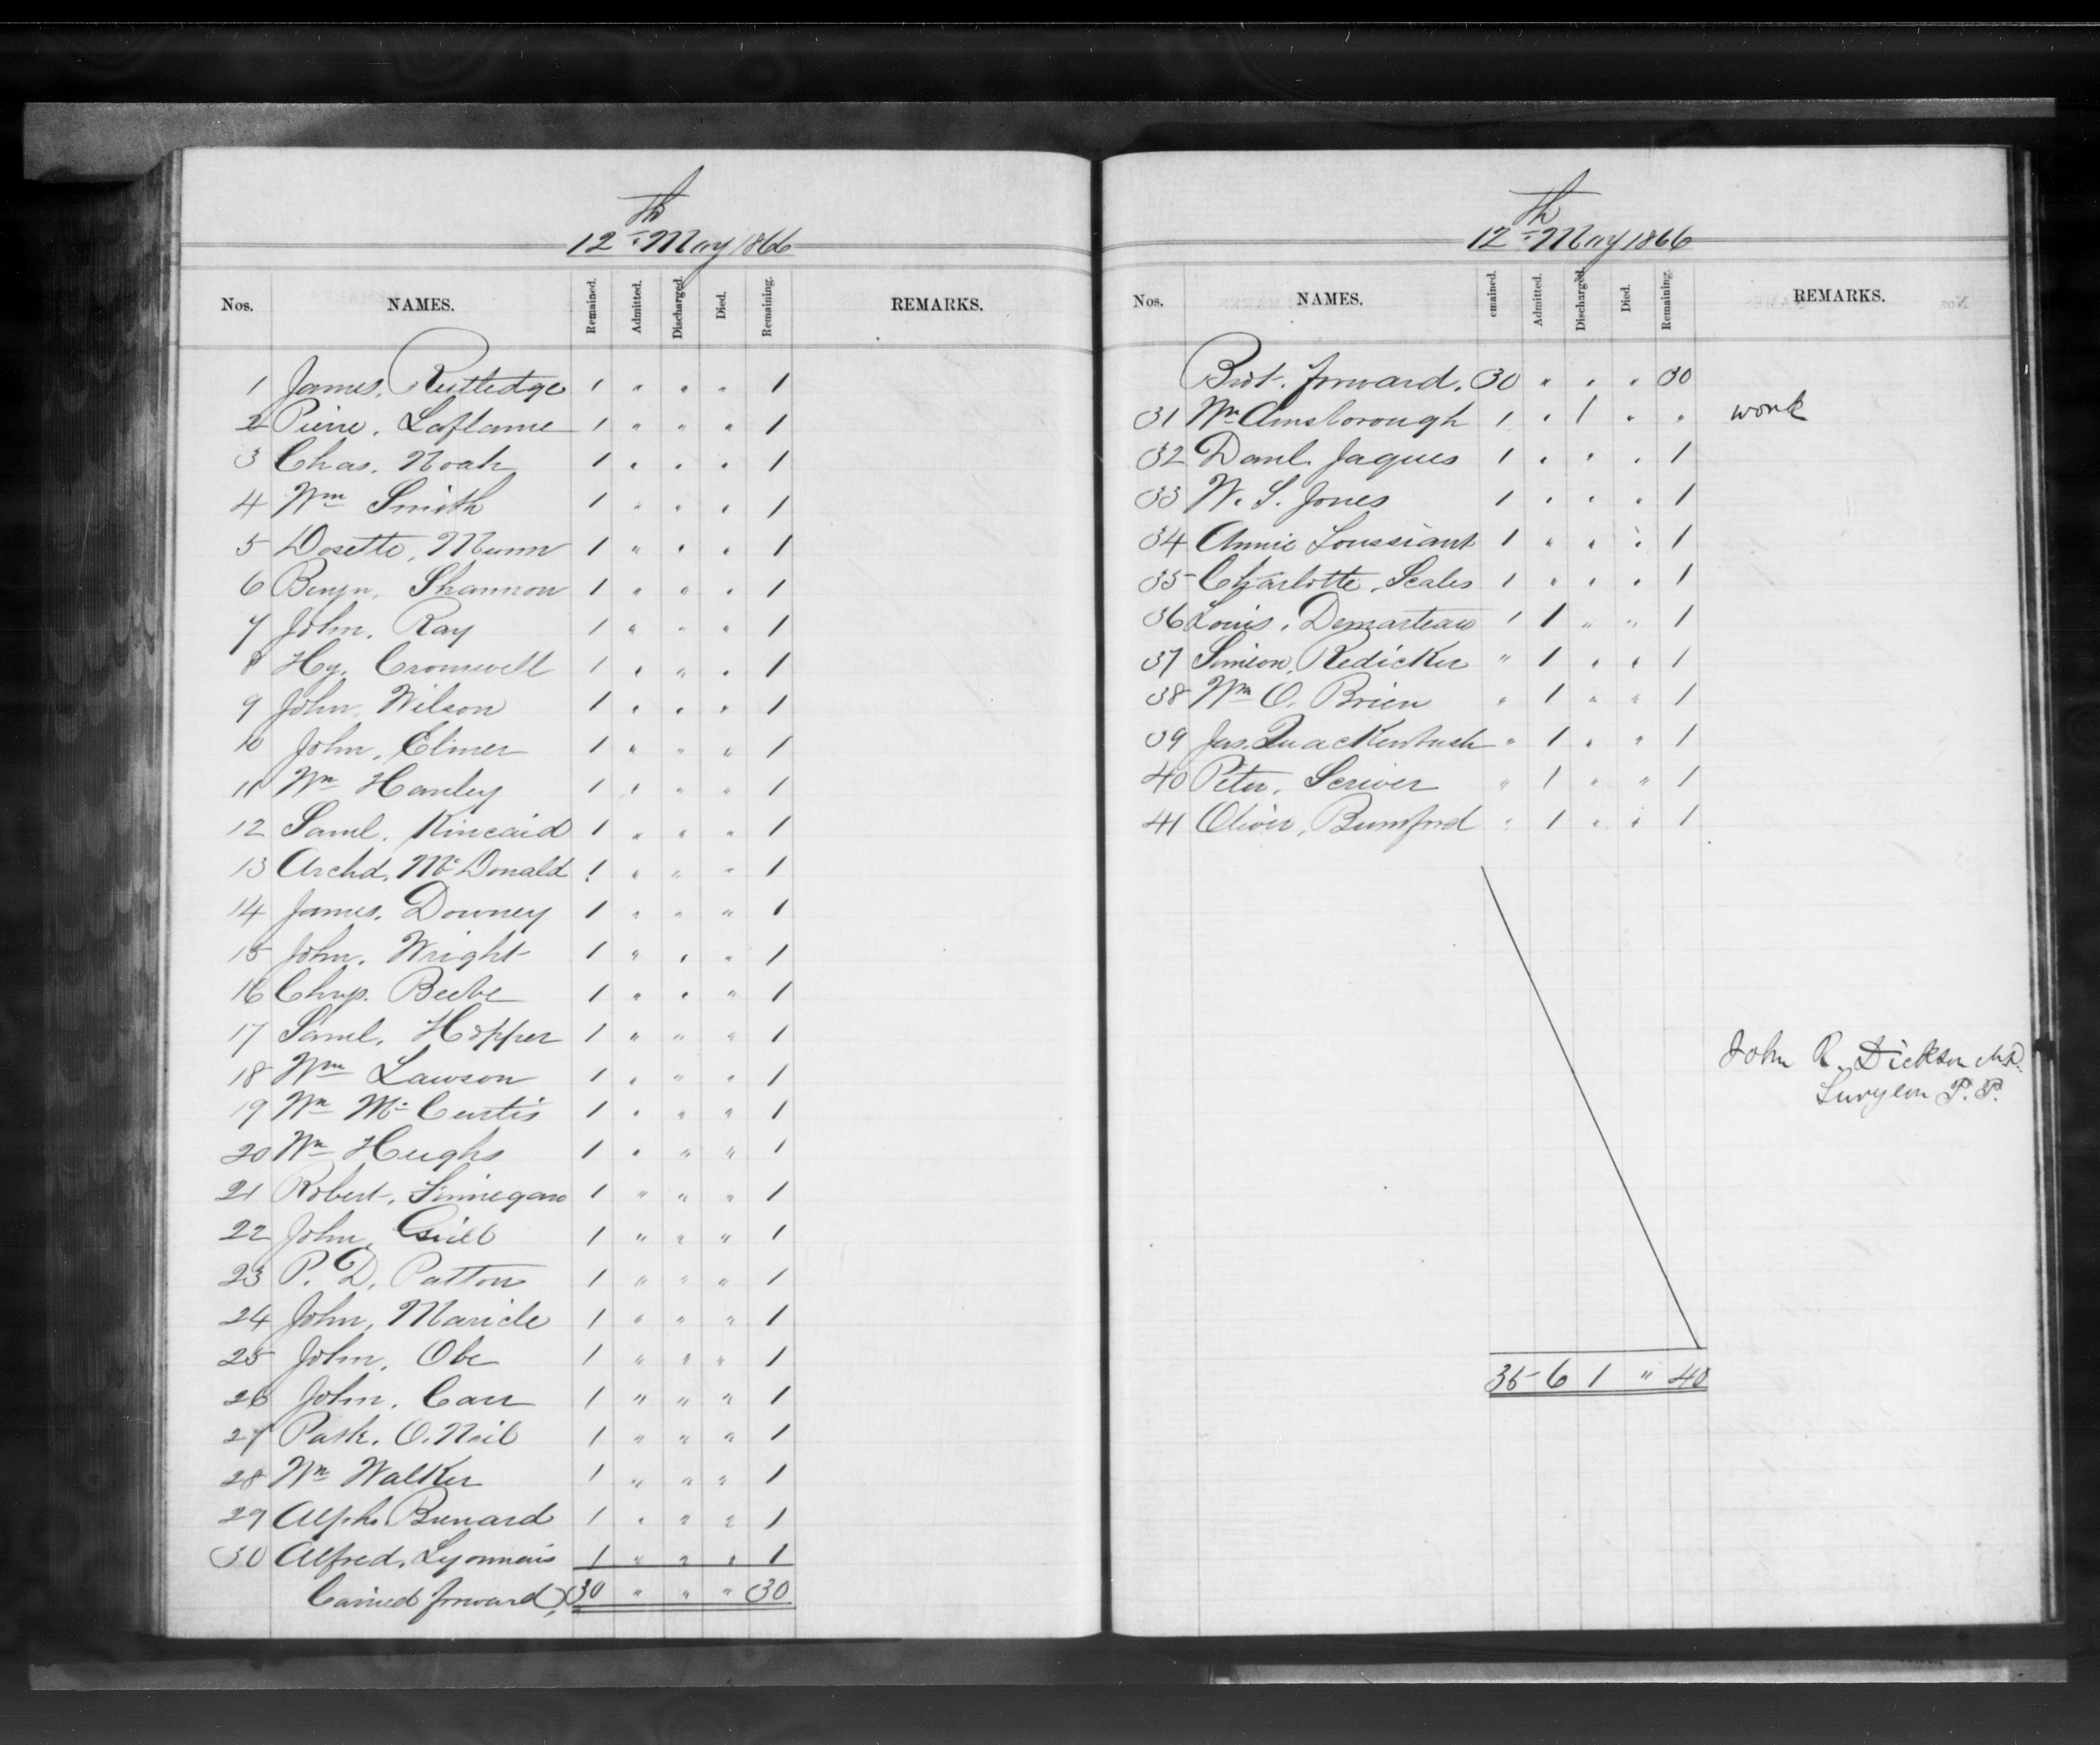 12th May 1866
Nos. NAMES. Remained. Admitted. Discharged. Died. Remaining. REMARKS.
1 James, Rutledge 1 " " " 1
2 Pierre, Laflame 1 " " " 1
3 Chas. Noah 1 " " " 1
4 Wm Smith 1 " " " 1
5 Dosette, Munn 1 " " " 1
6 Benjn, Shannon 1 " " " 1
7 John, Ray 1 " " " 1
8 Hy. Cromwell 1 " " " 1
9 John, Wilson 1 " " " 1
10 John, Elmer 1 " " " 1
11 Wm Hanley 1 " " " 1
12 Saml. Kincaid 1 " " " 1
13 Archd. McDonald 1 " " " 1
14 James. Downey 1 " " " 1
15 John. Wright 1 " " " 1
16 Chrys. Beebe 1 " " " 1
17 Saml. Hopper 1 " " " 1
18 Wm Lawson 1 " " " 1
19 Wm McCurtis 1 " " " 1
20 Wm Hughs 1 " " " 1
21 Robert, Finnegan 1 " " " 1
22 John, 1 " " " 1
23 P. D. Patton 1 " " " 1
24 John, Maricle 1 " " " 1
25 John, Obe 1 " " " 1
26 John. Carr 1 " " " 1
27 Patk. O.Neil 1 " " " 1
28 Wm Walker 1 " " " 1
29 Alph. Bunard 1 " " " 1
30 Alfred, Lyonnais 1 " " " 1
Carried forward, 30 " " " 30
12th May 1866
Nos. NAMES. emained. Admitted. Discharged. Died. Remaining. REMARKS.
Brot. forward. 30 " " " 30
31 Wm Ainsborough 1 " 1 " " work
32 Danl. Jaques 1 " " " 1
33 W. S. Jones 1 " " " 1
34 Annie Loussiant 1 " " " 1
35 Charlotte, Scales 1 " " " 1
36 Louis, Demarteau 1 1 " " 1
37 Simeon, Redicker " 1 " " 1
38 Wm O. Brien " 1 " " 1
39 Jas. Quackenbush " 1 " " 1
40 Peter, Scriver " 1 " " 1
41 Oliver, Bumford " 1 " " 1
John R. Dickson M.D.
Surgeon P. P.
35 6 1 " 40